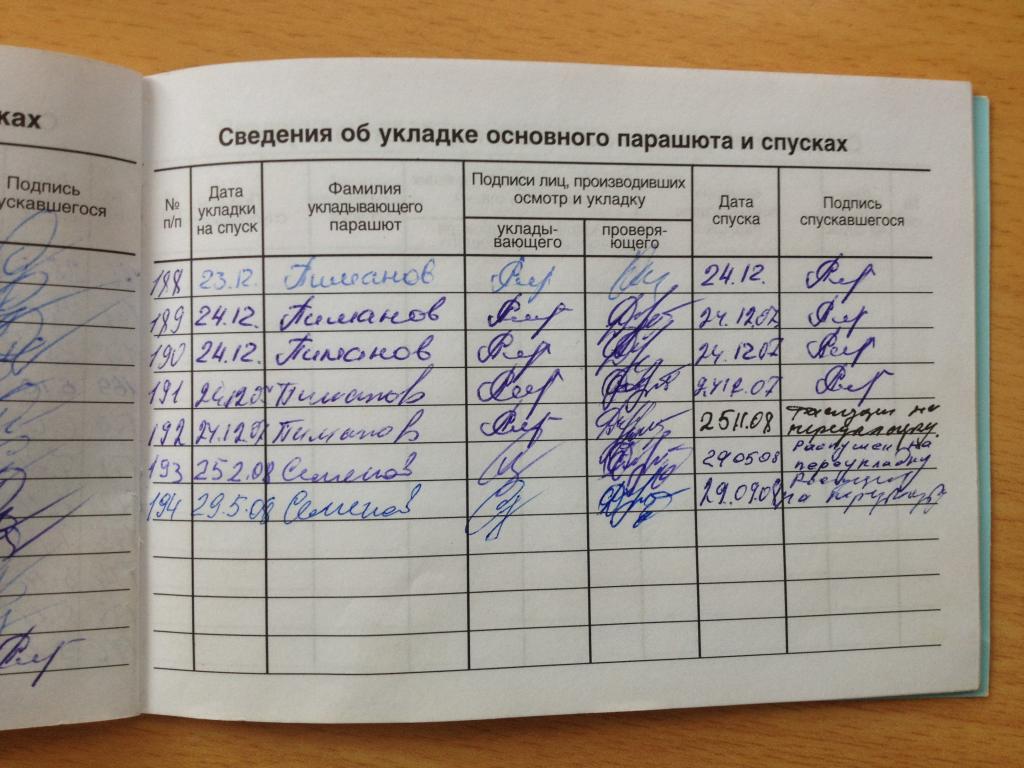 ках
Подпись
ускавшегося
Сведения об укладке основного парашюта и спусках
№
п/п
Дата
укладки
на спуск
Фамилия
укладывающего
парашют
Подписи лиц, производивших
осмотр и укладку
уклады-
вающего
проверя-
ющего
Дата
спуска
Подпись
спускавшегося
188 23.12. Пиманов 24.12.
189 24.12. Пиманов 24.12.07
190 24.12. Пиманов 24.12.07
191 24.12.07 Пиманов 24.12.07
192 24.12.07 Пиманов 25.11.08 на
переукладку
193 25.2.08 Семенов 29.05.08 Распущен на
переукладку
194 29.5.08 Семенов 29.09.08 Распущен
на переукладку